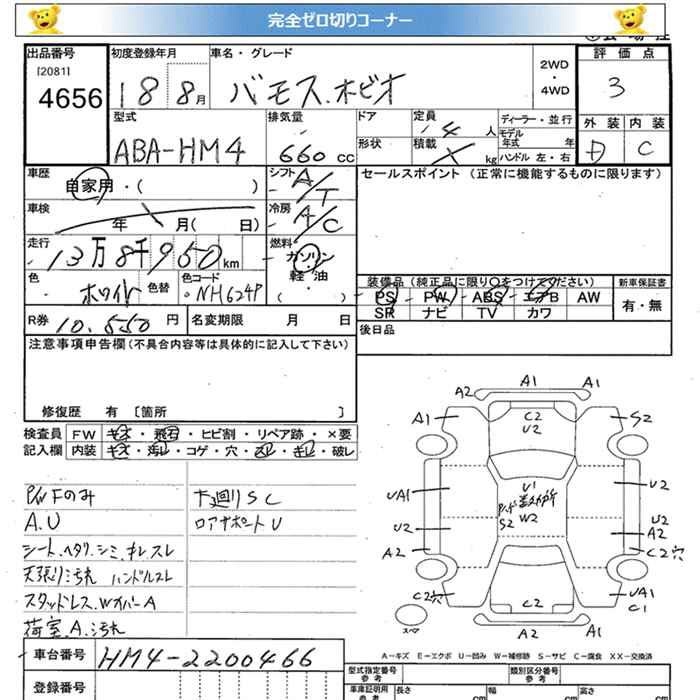 完全ゼロ切りコーナー
出品番号 初度登録年月 車名・グレード 2WD・4WD 評価点
[2081]
4656 18 8月 バモス.ホビオ 3
型式 排気量 ドア 定員 4人 ディーラー・並行 外装 内装
ABA-HM4 660cc 形状 積載 kg モデル年式 年 ハンドル 左・右 C
車歴 自家用・( ) シフト A/T セールスポイント (正常に機能するものに限ります)
車検 年 月( 日) 冷房 A/C
走行 13万8千950km 燃料 ガソリン・軽油(・)
色 ホワイト 色替 色コード NH624P 装備品(純正品に限り○をつけてください) 新車保証書
PS PW ABS エアB AW 有・無
SR ナビ TV カワ
R券 10.550円 名変期限 月 日 後日品
注意事項申告欄(不具合内容等は具体的に記入して下さい)
修復歴 有 [箇所 ]
検査員 FW キズ・飛石・ヒビ割・リペア跡・×要
記入欄 内装 キズ・汚レ・コゲ・穴・スレ・キレ・破レ
P/W Fのみ 下廻りSC
A.U ロアサポートU
シート.ヘタリ.シミ.キレ.スレ
天張り汚れ ハンドルスレ
スタッドレス.WカバーA
荷室.A.汚れ
A1
A2 A1
A1 C2 U2 S2
UA1 U1 U2
S2 W2
U2 U2
A2 A2
C2穴
C2穴 C2 UA1
C1
スペア A2 A1
A2
A-キズ E-エクボ U-凹み W-補修跡 S-サビ C-腐食 XX-交換済
車台番号 HM4-2200466 型式指定番号 参考 類別区分番号 参考
登録番号 車庫証明用 参考 長さ cm 幅 cm 高さ cm